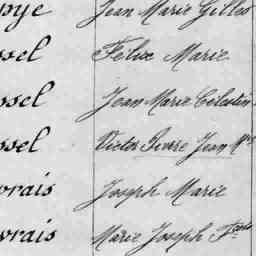 pye Jean Marie Gilles
ssel Félix Marie
ssel Jean Marie Célestin
ssel Victor Pierre Jean Mie
vrais Joseph Marie
vrais Marie Joseph Fçois